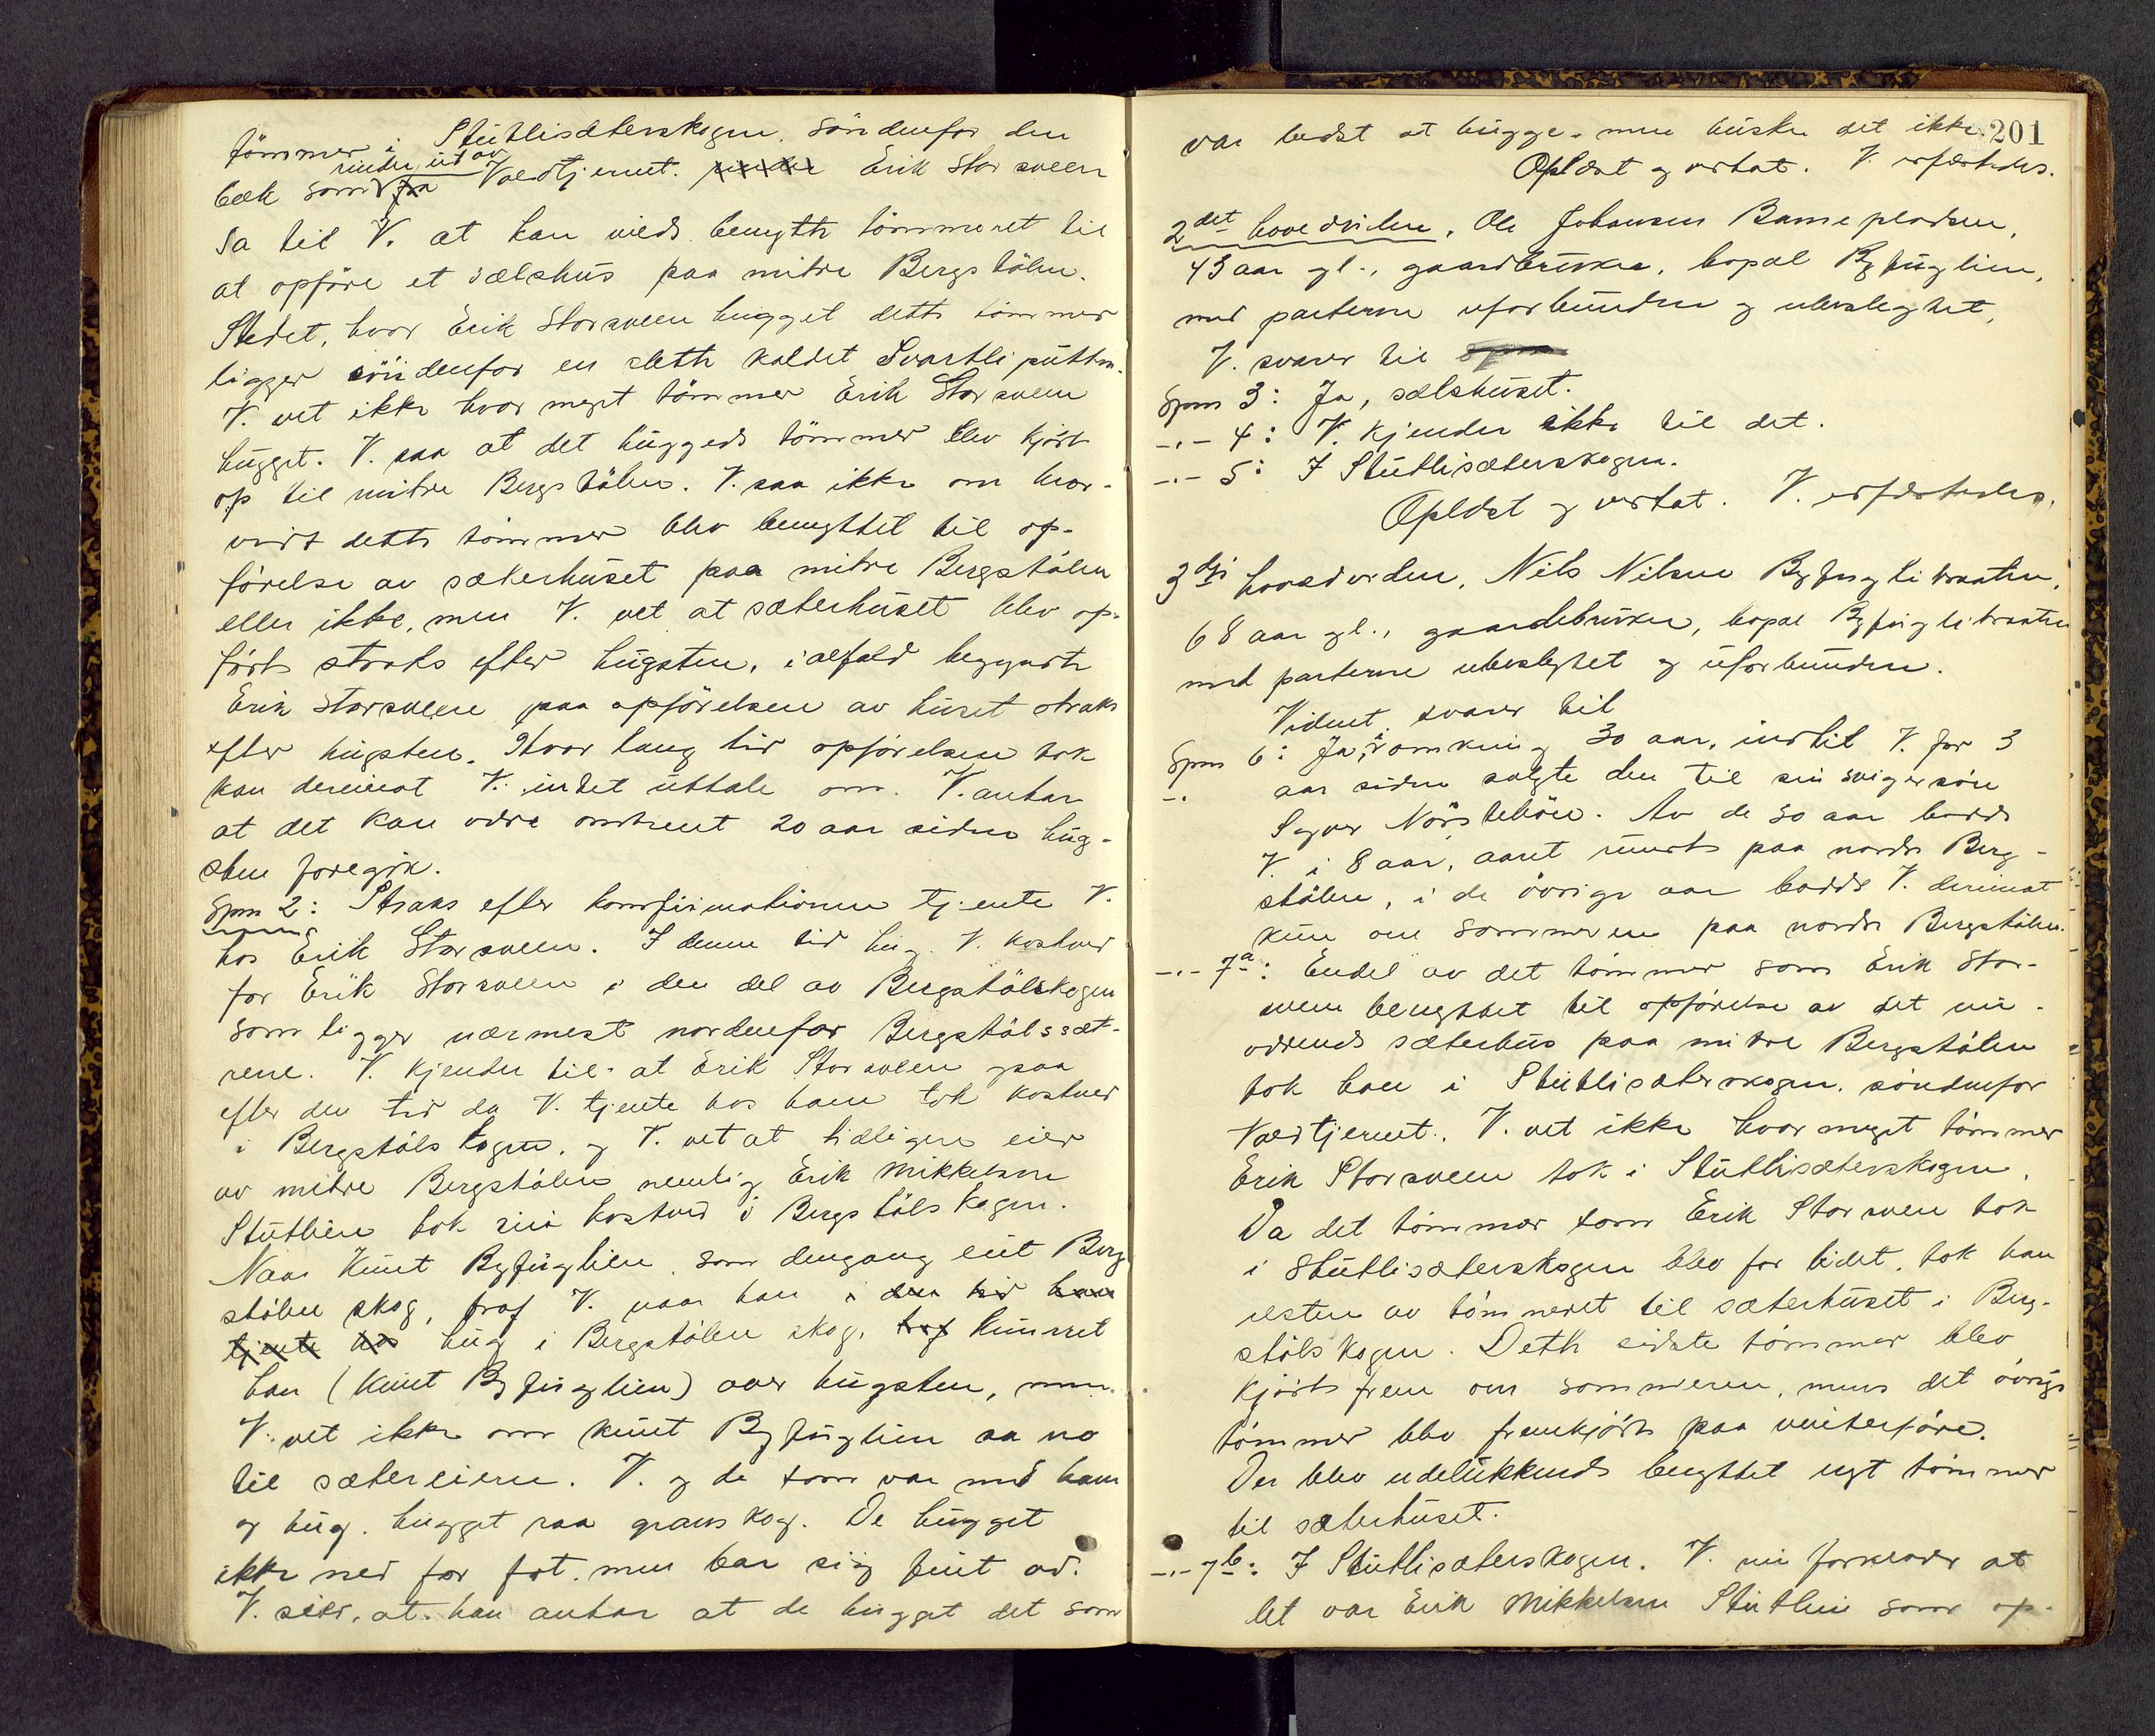 tømmer i Stutlisæterskogen, søndenfor den
rinder ut av
bæk som fra Valdtjernet. Erik Storsveen
sa til V. at han vilde benytte tømmeret til
at opføre et sælshus paa mitre Bergstølen.
Stedet, hvor Erik Storsveen hugget dette tømmer
ligger söndenfor en slette kaldet Svartliputten.
V. vet ikke hvor meget tømmer Erik Storsveen
hugget. V. saa at det huggede tømmer blev kjørt
op til mitre Bergstølen. V. saa ikke om hvor-
vidt dette tømmer blev benyttet til op-
førelse av sæterhuset paa mitre Bergstølen
eller ikke, men V. vet at sæterhuset blev op-
ført straks efter hugsten, ialfald begynte
Erik Storsveen paa opførelsen av huset straks
efter hugsten. Hvor lang tid opførelsen tok
kan derimot V. intet uttale om. V. antar
at det kan være omtrent 20 aar siden hug-
sten foregik.
Spm 2: Straks efter konfirmationen tjente V.
hos Erik Storsveen. I denne tid hug V. kostved
for Erik Storsveen i den del av Bergstølskogen
som ligger nærmest nordenfor Bergstølssæt-
rene. V. kjender til at Erik Storsveen ogsaa
efter den tid da V. tjente hos ham tok kostved
i Bergstølskogen, og V. vet at tidligere eier
av mitre Bergstølen nemlig Erik Mikkelsen
Stutlien tok sin kostved i Bergstølskogen.
Naar Knut Byfuglien som dengang eiet Berg-
stølen skog, traf V. naar han i den tid han
tjente hos hug i Bergstølen skog, traf knurret
han (Knut Byfuglien) over hugsten, men
V. vet ikke om Knut Byfuglien sa no
til sætereieren. V. og de som var med ham
og hug, hugget raa granskog. De hugget
ikke ned for fot, men bar sig fint ad.
V. sier, at han antar at de hugget det som
201
var bedst at hugge, men husker det ikke.
Oplæst og vedtat. V. erfærdedes.
2det hovedvidne, Ole Johansen Barnepladsen,
43 aar gl., gaardbruker, bopæl Byfuglien,
med parterne uforbunden og ubeslegtet,
V. svarer til
Spm 3: Ja, sælshuset.
-"- 4: V. kjender ikke til det.
-"- 5: I Stutlisæterskogen.
Oplæst og vedtat. V. erfærdedes.
3dje hovedvidne, Nils Nilsen Byfuglibraaten,
68 aar gl., gaardebruker, bopæl Byfuglibraaten
med parterne ubeslegtet og uforbunden.
Vidnet svarer til
Spm 6: Ja, i omkring 30 aar, indtil V. for 3
-"- aar siden solgte den til sin svigersøn
Syver Nörstebøen. Av de 30 aar bodde
V. i 8 aar, aaret rundt paa nordre Berg-
stølen, i de övrige aar bodde V. derimot
kun om sommeren paa nordre Bergstølen.
-"- 7a: Endel av det tømmer som Erik Stor-
sveen benyttet til opførelse av det nu-
værende sæterhus paa mitre Bergstølen
tok han i Stutlisæterskogen, søndenfor
Valdtjernet. V. vet ikke hvor meget tømmer
Erik Storsveen tok i Stutlisæterskogen.
Da det tømmer som Erik Storsveen tok
i Stutlisæterskogen blev for litet, tok han
resten av tømmeret til sæterhuset i Berg-
stølskogen. Dette sidste tømmer blev
kjørt frem om sommeren, mens det øvrige
tømmer blev fremkjørt paa vinterføre.
Der blev udelukkende benyttet nyt tømmer
til sæterhuset.
-"- 7b: I Stutlisæterskogen. V. nu forklarer at
det var Erik Mikkelsen Stutlien som op-